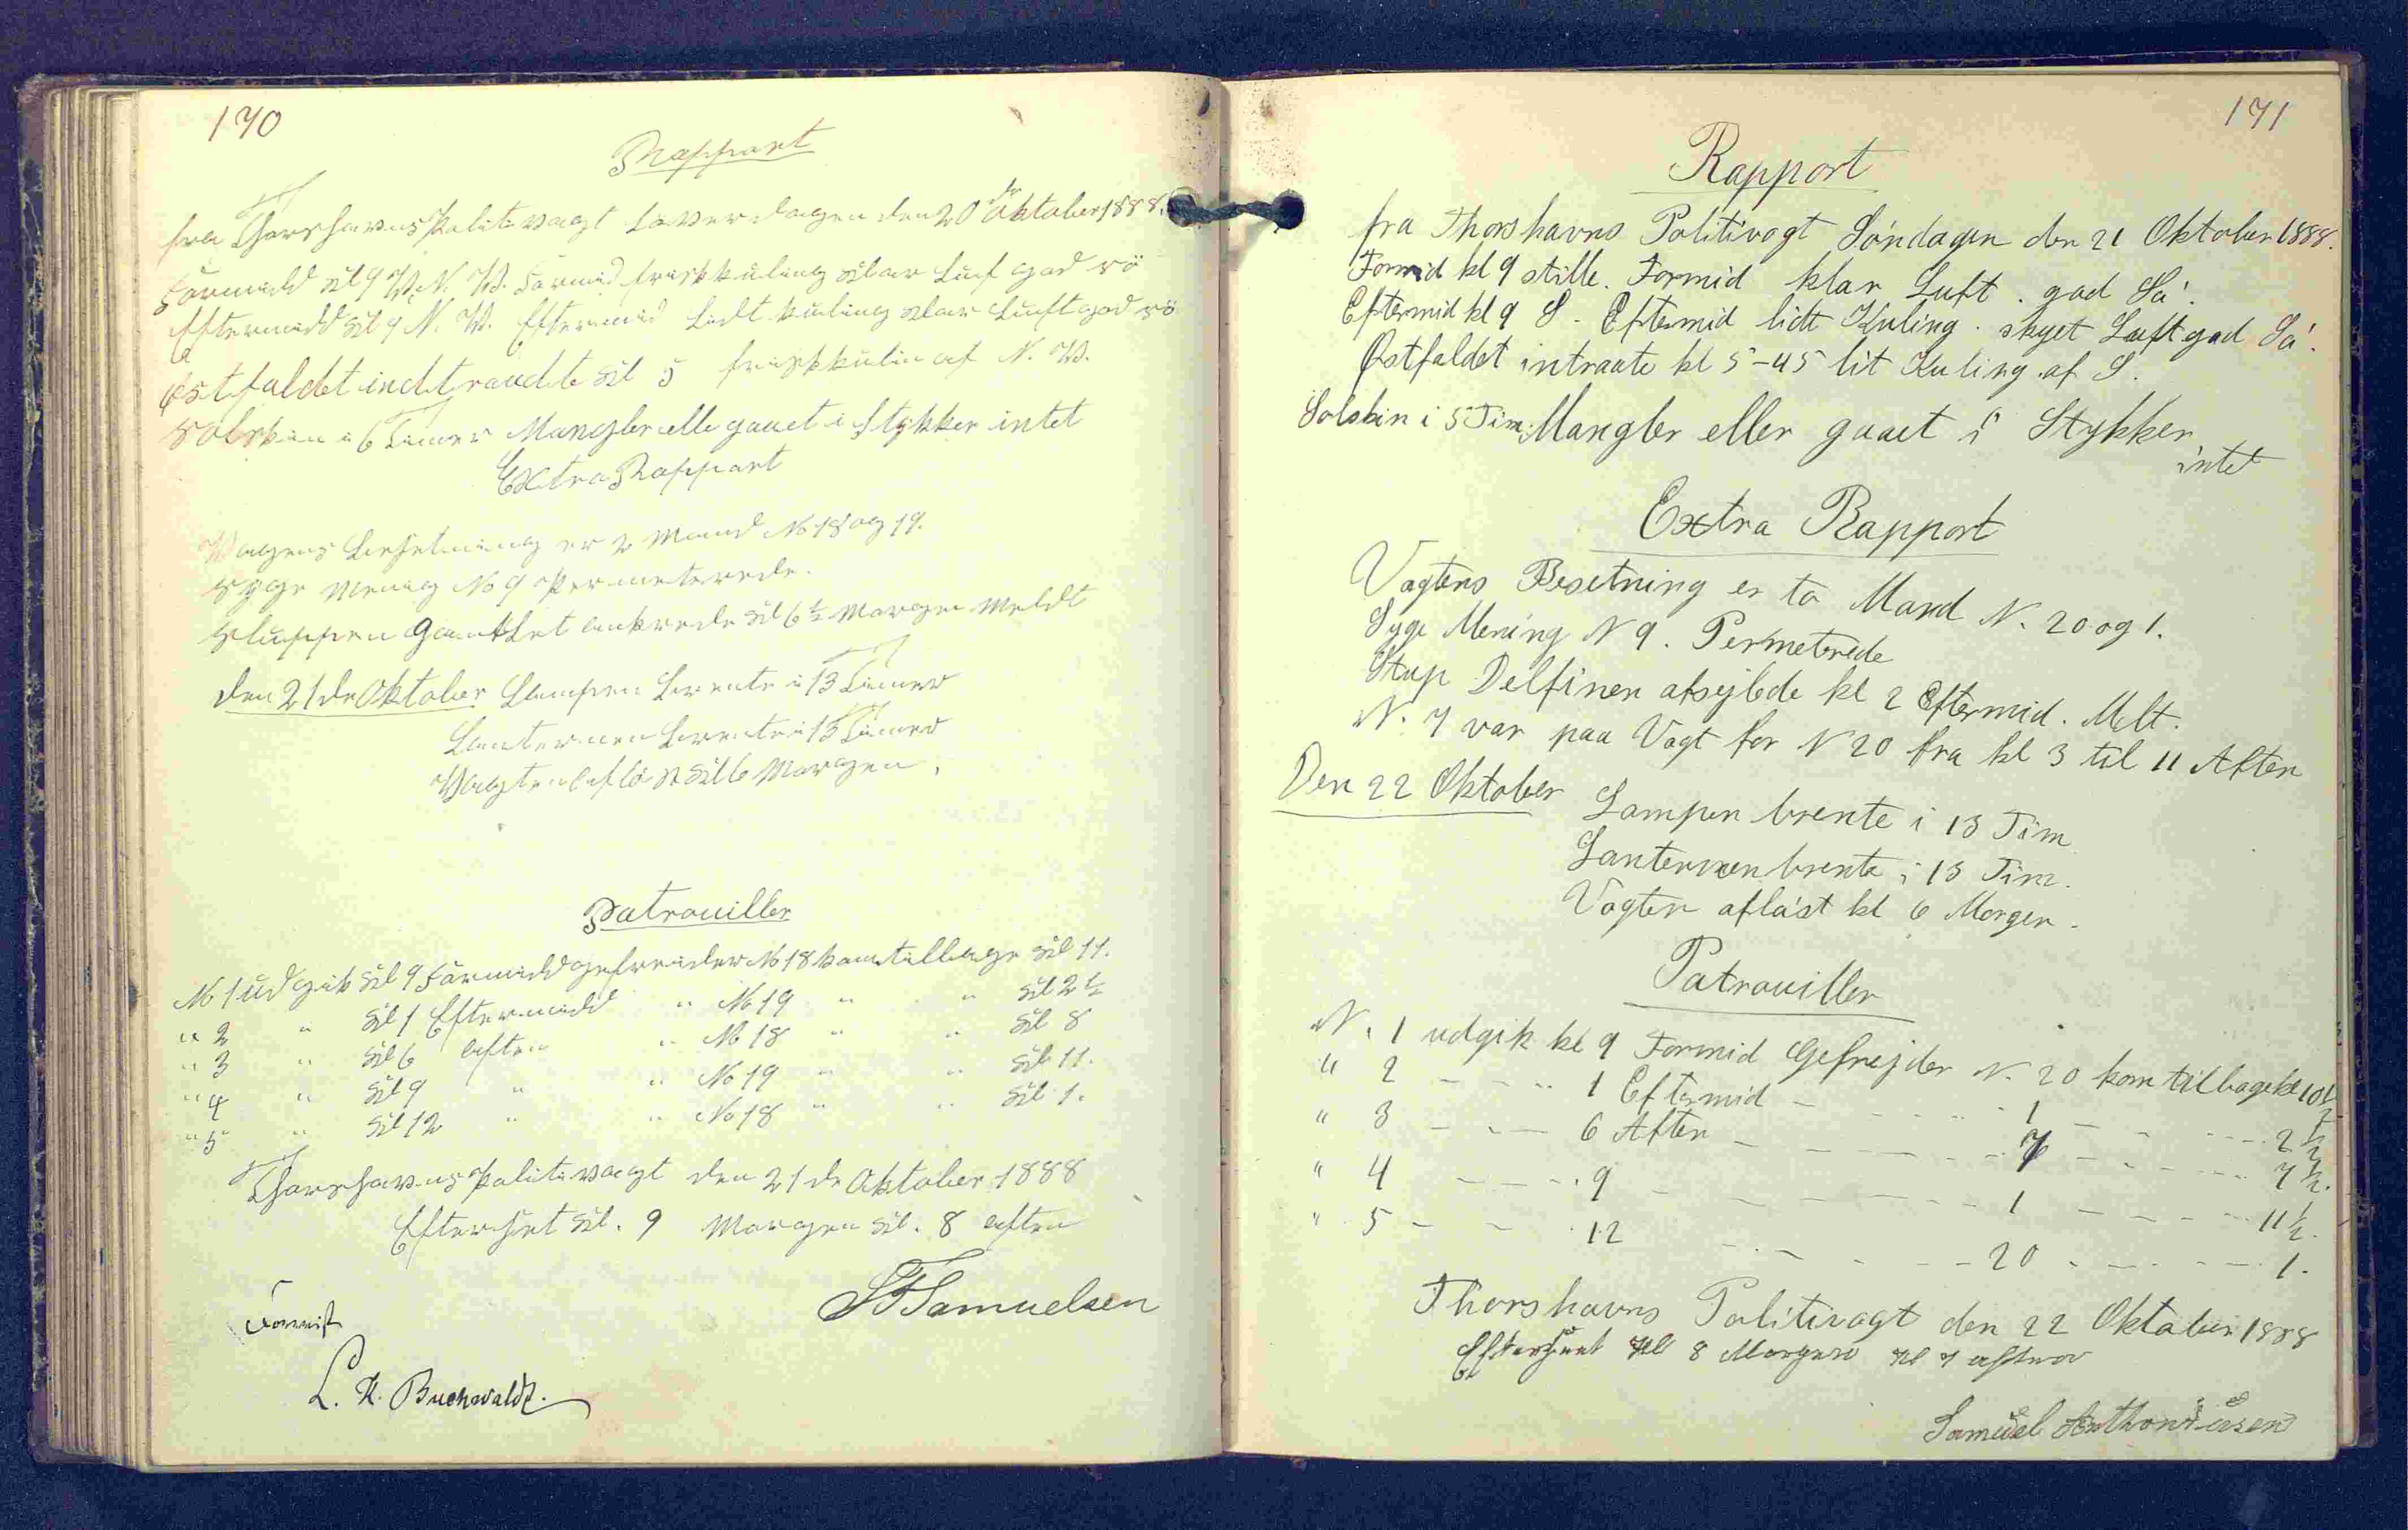 170
Rapport
fra Thorshavns Politivagt Løverdagen den 20 de Oktober 1888.
Formidd kl 9 W.N.W. Formid friskkuling klar Luf god sö
Eftermidd kl 9 N.W. Eftermid Lidt kuling klar Luft god sö
Östfaldet indtraadte kl 5 friskkulin af N.W.
Solskin i 6 Timer Mangler elle gaaet i Stykker intet
Extra Rapport
Vagens Besetning er 2 Mand No 18 og 19.
Syge Menig No 9 Permeterede.
Sluppen Gauntlet ankrede kl 6 1/2 Morgen Meldt
den 21 de Oktober Lampen brente i 13 Timer
Lanternen brente i 13 Timer
Vagten aflöst kl 6 Morgen.
Patrouiller
No 1 udgik kl 9 Formidd gefreider No 18 kom tilbage kl 11.
" 2 " kl 1 Eftermidd " No 19 " " kl 2 1/2
" 3 " kl 6 Aften " No 18 " " kl 8
" 4 " kl 9 " " No 19 " " kl 11.
" 5 " kl 12 " " No 18 " " kl 1.
Thorshavns Politivagt den 21 de Oktober 1888
Efterset kl. 9 Morgen kl. 8 Aften
SFSamuelsen
Forevist
L. H. Buchwaldt.
171
Rapport
fra Thorshavns Politivagt Søndagen den 21 Oktober 1888.
Formid kl 9 stille. Formid klar Luft. god Sö.
Eftermid kl 9 S. Eftermid lidt Kuling. skyet Luft god Sö.
Østfaldet intraate kl 5-45 lit Kuling af S.
Solskin i 5 Tim. Mangler eller gaaet i Stykker
intet
Extra Rapport
Vagtens Besetning er to Mand N. 20 og 1.
Syge Mening N 9. Permeterede
Skup Delfinen afsejlede kl 2 Eftermid. Melt.
N. 7 var paa Vagt for N 20 fra kl 3 til 11 Aften
Den 22 Oktober Lampen brente i 13 Tim
Lanternen brente i 13 Tim.
Vagten afløst kl 6 Morgen.
Patrouiller
N. 1 udgik kl 9 Formid Gefrejder N. 20 kom tilbage kl 10 1/2
" 2 - - " 1 Eftermid - - - 1 - - - 2 1/2
" 3 - - - 6 Aften - - - 7 - - - 7 1/2.
" 4 - - - 9 - - - 1 - - - 11 1/2.
" 5 - - 12 - - - 20 - - - 1.
Thorshavns Politivagt den 22 Oktober 1888
Efterseet Kl 8 Morgen Kl 7 aften
Samuel